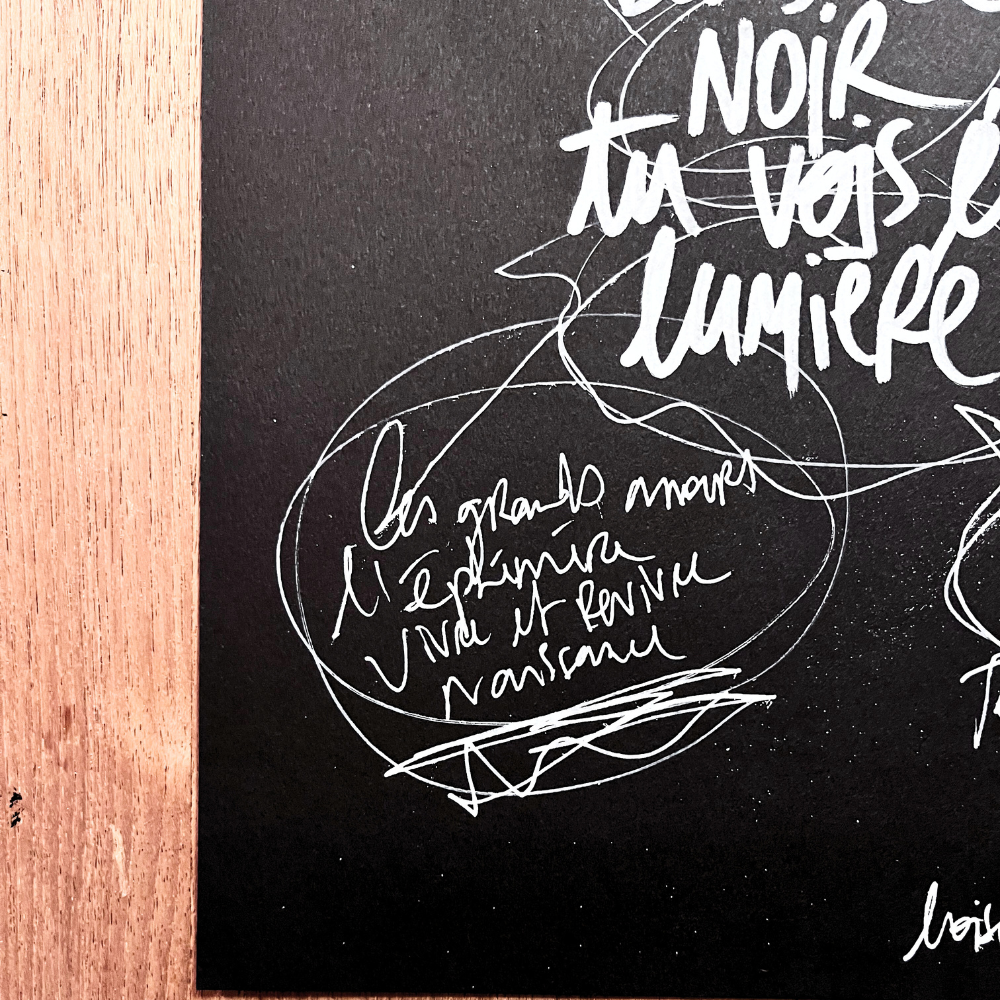 NOIR
tu vois l
lumière
Les grands amours
l'éphémère
vivre et Revivre
naissance
T
bois